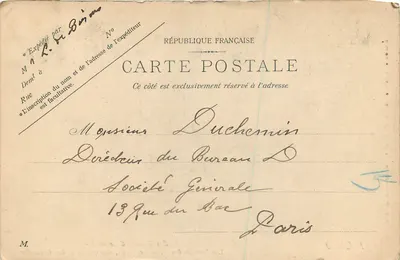 RÉPUBLIQUE FRANÇAISE
CARTE POSTALE
Ce côté est exclusivement réservé à l'adresse
*Expédié par
M
Demt à
Rue
N°
*L'inscription du nom et de l'adresse de l'expéditeur
est facultative.
Monsieur Duchemin
Directeur du Bureau D
Société Génerale
13 Rue du Bac
Paris
M.